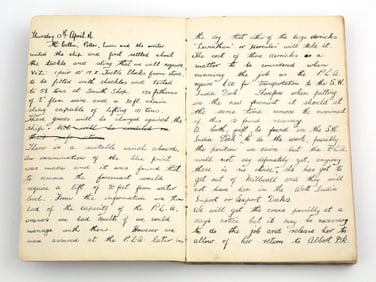 Thursday 13th April
Mr Cotton, Potter, Lunn and the writer
visited the ship and first settled about
the tackle and sling that we will require
Viz. 1 pair 10" M.I. Treble Blocks from store
to be fitted with shackles and tested
to 58 tons at Smith Ships. 120 fathoms
of 2" flex wire and a 30ft chain
sling capable of lifting 10 tons.
These goods will be charged against the
ship.
There is a suitable winch aboard,
An examination of the blue print
was made and it was found that
to remove the foremast would
require a lift of 70 feet from water
level. From the information we then
had of the capacity of the P.L.A.
cranes we had doubts if we could
manage with them. However we
were assured at the P.L.A. later in
the day that one of the large derricks
"Leviathan" or "Hercules" will take it.
The cost of these derricks is a
matter to be considered when
running the job as the P.L.A.
require £50 for transportation to the S.W.
India Dock. Therefore when putting
in the new foremast it should at
the same time remove the mainmast
if this is found necessary.
A berth will be found in the S.W.
India Dock to do the work, possibly
the position we desire but the P.L.A.
will not say definitely yet, anyway
there is no choice, she has got to
get out of Millwall and they will
not have her in the West India
Import or Export Docks.
We will get the crane possibly at a
days notice but it may be necessary
to do the job and release her to
allow of her return to Albert Dk.